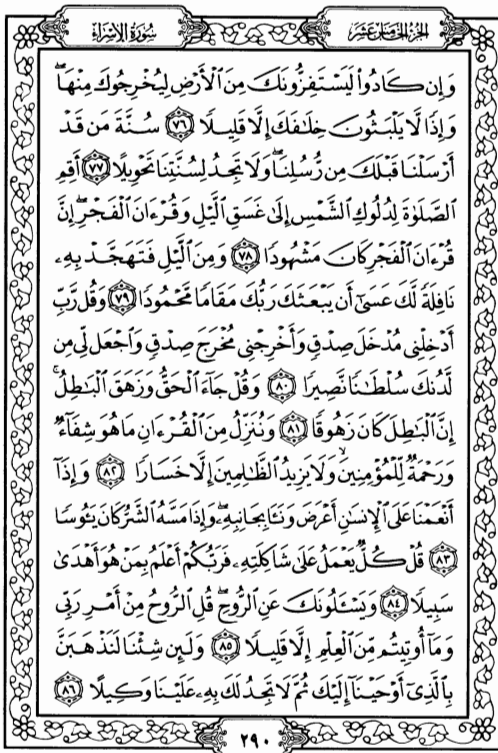 الجزء الخامس عشر
سورة الإسراء
وَإِن كَادُوا۟ لَيَسْتَفِزُّونَكَ مِنَ ٱلْأَرْضِ لِيُخْرِجُوكَ مِنْهَا ۖ
وَإِذًا لَّا يَلْبَثُونَ خِلَٰفَكَ إِلَّا قَلِيلًا ٧٦ سُنَّةَ مَن قَدْ
أَرْسَلْنَا قَبْلَكَ مِن رُّسُلِنَا ۖ وَلَا تَجِدُ لِسُنَّتِنَا تَحْوِيلًا ٧٧ أَقِمِ
ٱلصَّلَوٰةَ لِدُلُوكِ ٱلشَّمْسِ إِلَىٰ غَسَقِ ٱلَّيْلِ وَقُرْءَانَ ٱلْفَجْرِ ۖ إِنَّ
قُرْءَانَ ٱلْفَجْرِ كَانَ مَشْهُودًا ٧٨ وَمِنَ ٱلَّيْلِ فَتَهَجَّدْ بِهِۦ
نَافِلَةً لَّكَ عَسَىٰٓ أَن يَبْعَثَكَ رَبُّكَ مَقَامًا مَّحْمُودًا ٧٩ وَقُل رَّبِّ
أَدْخِلْنِى مُدْخَلَ صِدْقٍ وَأَخْرِجْنِى مُخْرَجَ صِدْقٍ وَٱجْعَل لِّى مِن
لَّدُنكَ سُلْطَٰنًا نَّصِيرًا ٨٠ وَقُلْ جَآءَ ٱلْحَقُّ وَزَهَقَ ٱلْبَٰطِلُ ۚ
إِنَّ ٱلْبَٰطِلَ كَانَ زَهُوقًا ٨١ وَنُنَزِّلُ مِنَ ٱلْقُرْءَانِ مَا هُوَ شِفَآءٌ
وَرَحْمَةٌ لِّلْمُؤْمِنِينَ ۙ وَلَا يَزِيدُ ٱلظَّٰلِمِينَ إِلَّا خَسَارًا ٨٢ وَإِذَآ
أَنْعَمْنَا عَلَى ٱلْإِنسَٰنِ أَعْرَضَ وَنَـَٔا بِجَانِبِهِۦ ۖ وَإِذَا مَسَّهُ ٱلشَّرُّ كَانَ يَـُٔوسًا
٨٣ قُلْ كُلٌّ يَعْمَلُ عَلَىٰ شَاكِلَتِهِۦ فَرَبُّكُمْ أَعْلَمُ بِمَنْ هُوَ أَهْدَىٰ
سَبِيلًا ٨٤ وَيَسْـَٔلُونَكَ عَنِ ٱلرُّوحِ ۖ قُلِ ٱلرُّوحُ مِنْ أَمْرِ رَبِّى
وَمَآ أُوتِيتُم مِّنَ ٱلْعِلْمِ إِلَّا قَلِيلًا ٨٥ وَلَئِن شِئْنَا لَنَذْهَبَنَّ
بِٱلَّذِىٓ أَوْحَيْنَآ إِلَيْكَ ثُمَّ لَا تَجِدُ لَكَ بِهِۦ عَلَيْنَا وَكِيلًا ٨٦
٢٩٠